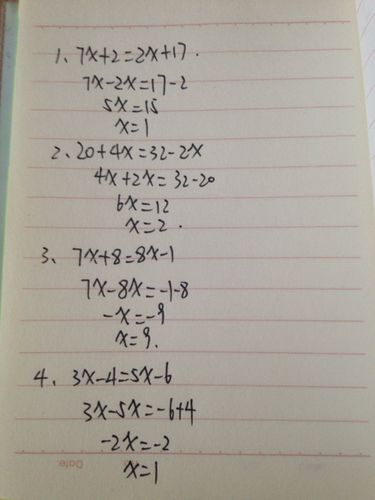 1、7x+2=2x+17.
7x-2x=17-2
5x=15
x=1
2、20+4x=32-2x
4x+2x=32-20
6x=12
x=2.
3、7x+8=8x-1
7x-8x=-1-8
-x=-9
x=9.
4、3x-4=5x-6
3x-5x=-6+4
-2x=-2
x=1
Date.